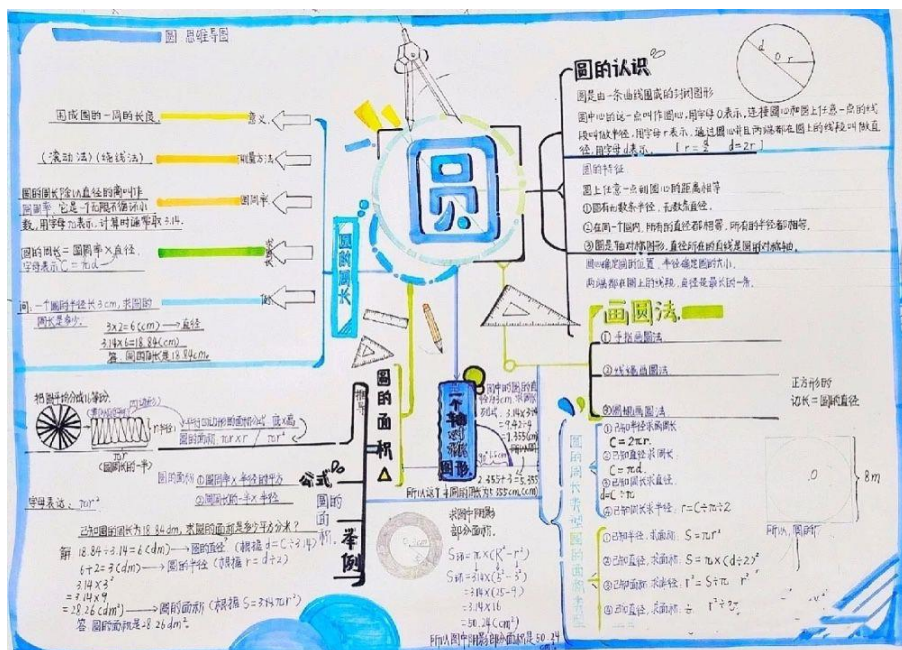 圆 思维导图
围成圆的一周的长度
意义
(滚动法)(绕线法)
测量方法
圆的周长除以直径的商叫作
圆周率,它是一个无限不循环小
数,用字母π表示,计算时通常取3.14.
圆周率
圆的周长=圆周率×直径.
字母表示C=πd
问:一个圆的半径长3cm,求圆的
周长是多少.
3×2=6(cm)→直径
3.14×6=18.84(cm)
圆的周长
圆
圆的认识
d o r
圆是由一条曲线围成的封闭图形
圆中心的这一点叫作圆心,用字母O表示,连接圆心和圆上任意一点的线
段叫做半径,用字母r表示,通过圆心并且两端都在圆上的线段叫做直
径,用字母d表示.
d=2r]
圆的特征
圆上任意一点到圆心的距离相等
①圆有无数条半径,无数条直径.
②在同一个圆内,所有的直径都相等,所有的半径都相等.
③圆是轴对称图形,直径所在的直线是圆的对称轴.
圆心确定圆的位置,半径确定圆的大小.
两端都在圆上的线段,直径是最长的一条.
画圆法
①手指画圆法
②线绳画圆法
③圆规画圆法
正方形的
边长=圆的直径
O
8m
所以,圆的
把圆平均分成16等份.
πr
(圆周长的一半)
圆的面积 πr×r πr²
推导
字母表达:πr²
圆的面积
①圆周率×半径的平方
②圆周长的一半×半径
公式
圆的面积
圆的面积
举例
已知圆的周长为18.84dm,求圆的面积是多少平方分米?
解 18.84÷3.14=6(dm)→圆的直径(根据d=C÷3.14)
6÷2=3(dm)→圆的半径(根据r=d÷2)
3.14×3²
=3.14×9
=28.26(dm²)→圆的面积(根据S=3.14πr²)
答:圆的面积是28.26dm².
一个轴对称图形.
3.14×3
=9.42÷4
=2.355+3=5.355
所以这个半圆的周长为5.355cm.(cm)
求图中阴影
部分面积.
S环=π×(R²-r²)
S环=3.14×(5²-3²)
=3.14×(25-9)
=3.14×16
=50.24(cm²)
所以图中阴影部分面积是50.24
圆的周长类型
①已知半径求周长
C=2πr.
②已知直径求周长.
C=πd.
③已知周长求直径.
d=C÷π
④已知周长求半径,r=C÷π÷2
圆的面积类型
①已知半径,求面积.S=πr²
②已知直径,求面积.S=π×(d÷2)²
③已知面积求半径,r²=S÷π r²
④已知直径,求面积.